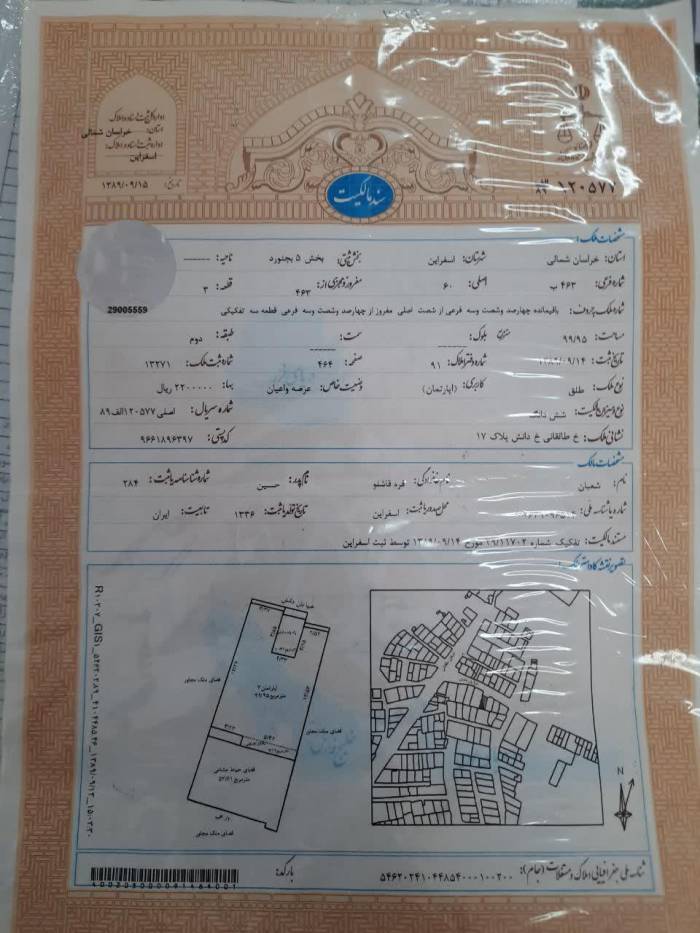 اداره کل ثبت اسناد و املاک
استان: خراسان شمالی
اداره ثبت اسناد و املاک:
اسفراین
تاریخ: ۱۳۸۹/۰۹/۱۵
سند مالکیت
۱۲۰۵۷۷ الف ۸۹
مشخصات ملک:
استان: خراسان شمالی شهرستان: اسفراین بخش ثبتی: بخش ۵ بجنورد ناحیه: ------
شماره فرعی: ۴۶۳ ب اصلی: ۶۰ مفروز و مجزی از: ۴۶۳ قطعه: ۳
شماره ملک بحروف: باقیمانده چهارصد وشصت وسه فرعی از شصت اصلی مفروز از چهارصد وشصت وسه فرعی قطعه سه تفکیکی
29005559
مساحت: ۹۹/۹۵ مترمربع بلوک: ------ سمت: ------ طبقه: دوم
تاریخ ثبت: ۱۳۸۹/۰۹/۱۴ شماره دفتر املاک: ۹۱ صفحه: ۴۶۴ شماره ثبت ملک: ۱۳۲۷۱
نوع ملک: طلق کاربری: (اپارتمان) وضعیت خاص: عرصه واعیان بها: ۲۲۰۰۰۰۰ ریال
نوع و میزان مالکیت: شش دانگ شماره سریال: اصلی ۱۲۰۵۷۷الف ۸۹
نشانی ملک: خ طالقانی خ دانش پلاک ۱۷ کدپستی: ۹۶۶۱۸۹۶۳۹۷
مشخصات مالک
نام: شعبان نام خانوادگی: قره قاشلو نام پدر: حسین شماره شناسنامه یا ثبت: ۲۸۴
شماره یا شناسه ملی: محل صدور یا ثبت: اسفراین تاریخ تولد یا ثبت: ۱۳۳۶ تابعیت: ایران
مستند مالکیت: تفکیک شماره ۱۹/۱۱۷۰۲ مورخ ۱۳۸۹/۰۹/۱۴ توسط ثبت اسفراین
تصویر نقشه کاداستر ملک:
خیابان دانش
فضای ملک مجاور
آپارتمان ۳
۹۹/۹۵ مترمربع
فضای ملک مجاور
فضای حیاط مشاعی
مترمربع ۵۲/۶۱
فضای ملک مجاور
خلیج فارس
N
شناسه ملی جغرافیایی املاک و مستغلات (جام): ۵۴۶۲۰۲۴۱۰۴۴۸۵۴۰۰۰۱۰۰۲۰۰
بارکد: